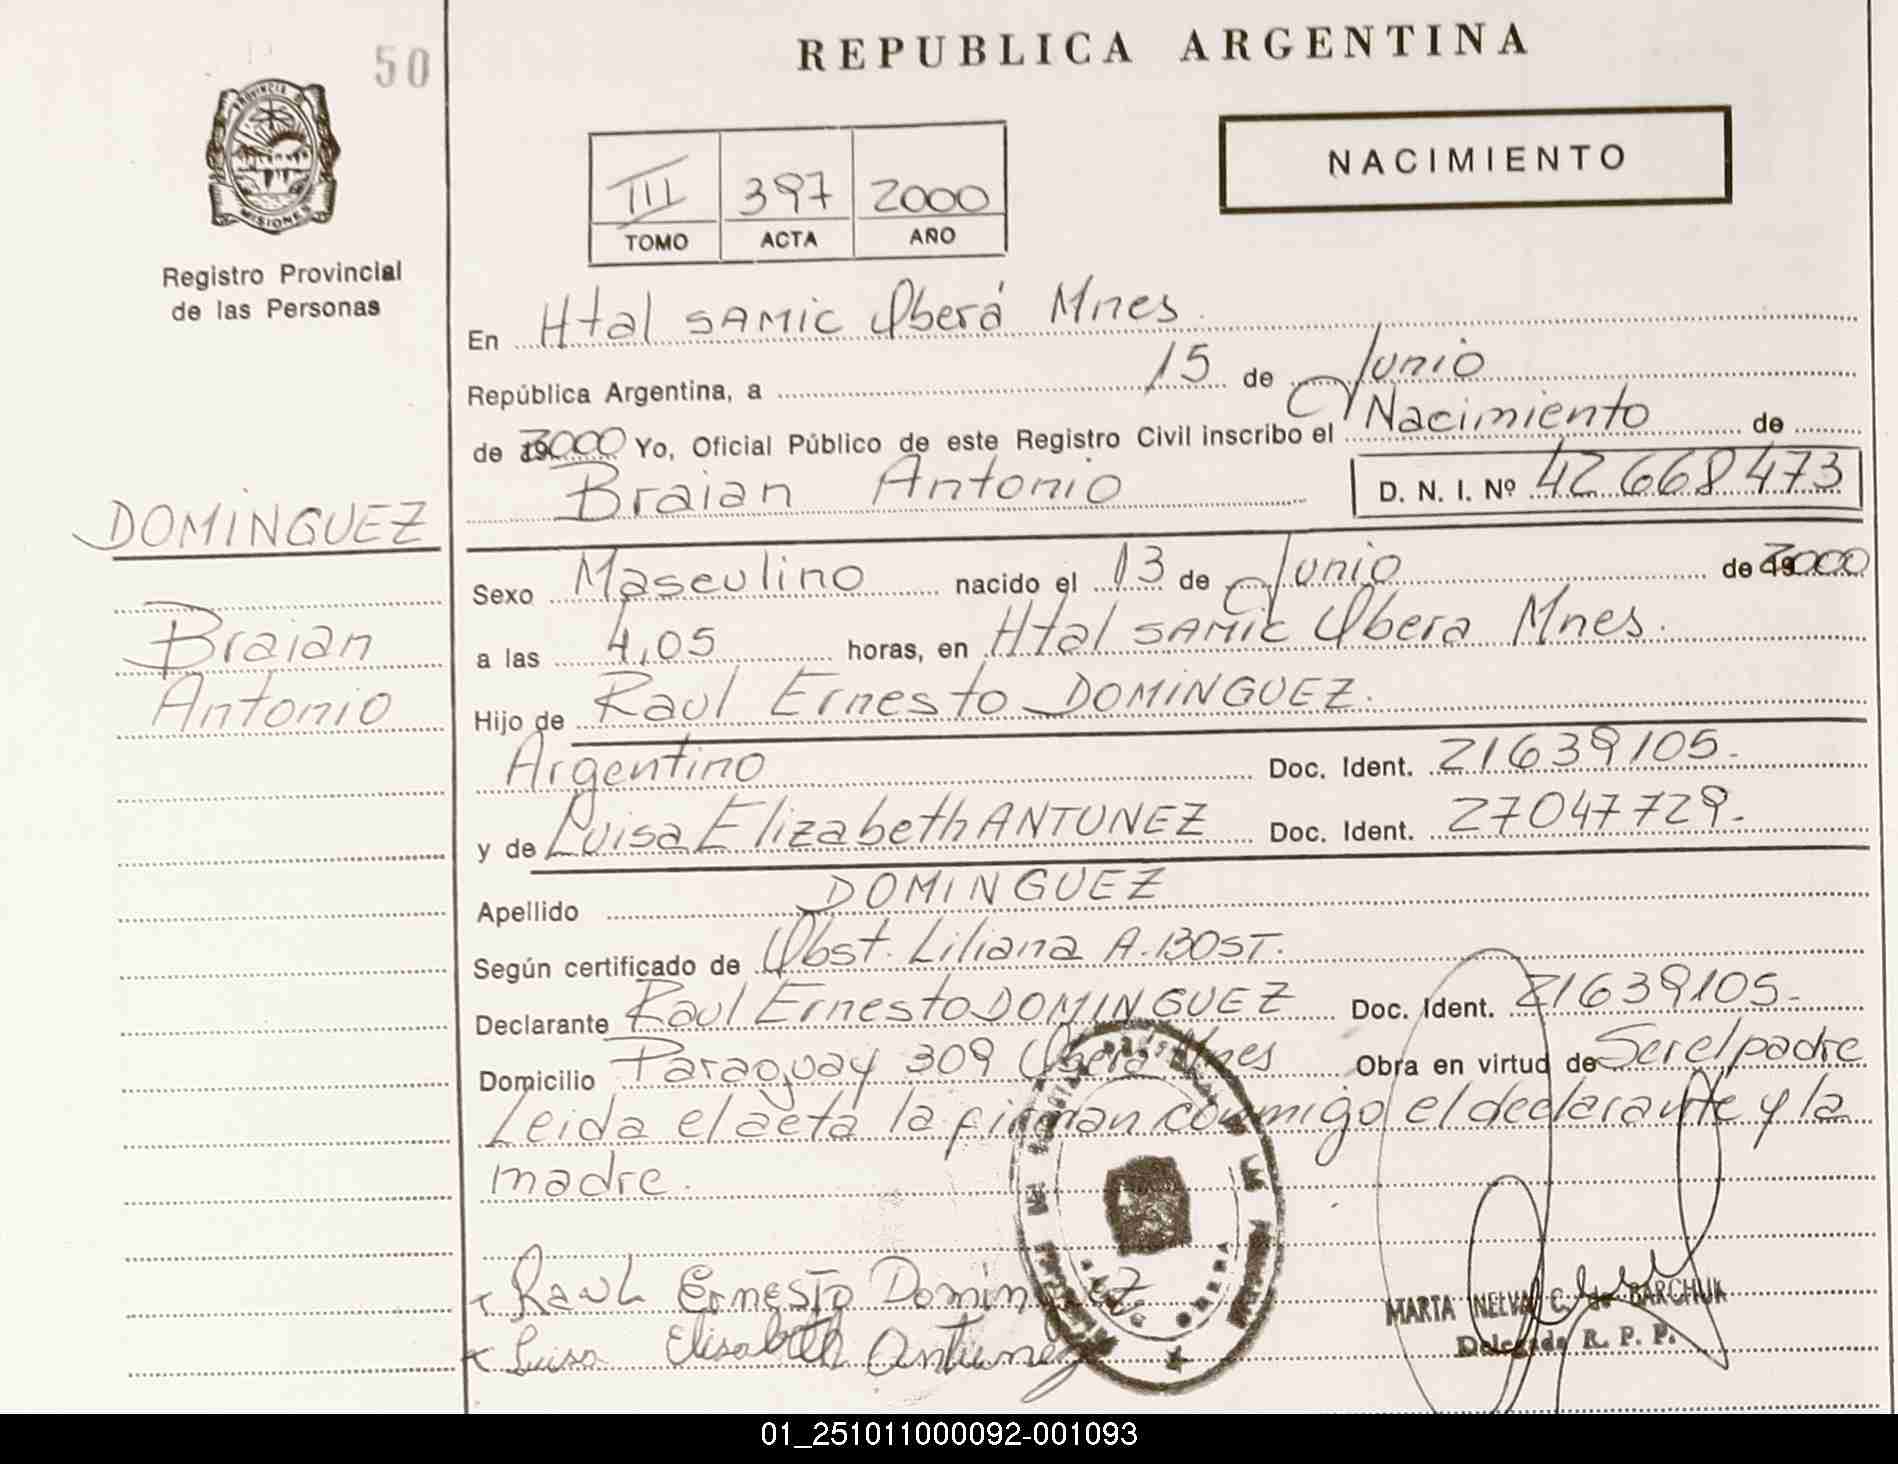 50
REPUBLICA ARGENTINA
PROVINCIA DE
MISIONES
Registro Provincial
de las Personas
III 397 2000
TOMO ACTA AÑO
NACIMIENTO
En Htal SAMIC Oberá Mnes.
República Argentina, a 15 de Junio
de 2000 Yo, Oficial Público de este Registro Civil inscribo el Nacimiento de
Braian Antonio D. N. I. Nº 42668473
DOMINGUEZ
Braian
Antonio
Sexo Masculino nacido el 13 de Junio de 2000
a las 4,05 horas, en Htal SAMIC Obera Mnes.
Hijo de Raul Ernesto DOMINGUEZ.
Argentino Doc. Ident. 21639105.
y de Luisa Elizabeth ANTUNEZ Doc. Ident. 27047729.
Apellido DOMINGUEZ
Según certificado de Obst. Liliana A. BOST.
Declarante Raul Ernesto DOMINGUEZ Doc. Ident. 21639105.
Domicilio Paraguay 309 Oberá Mnes Obra en virtud de Ser el padre
Leida el acta la firman conmigo el declarante y la
madre.
Raul Ernesto Dominguez
Luisa Elisabeth Antunez
OBERA
MARTA NELVA C. de BARCHUK
Delegada R. P. P.
01_251011000092-001093